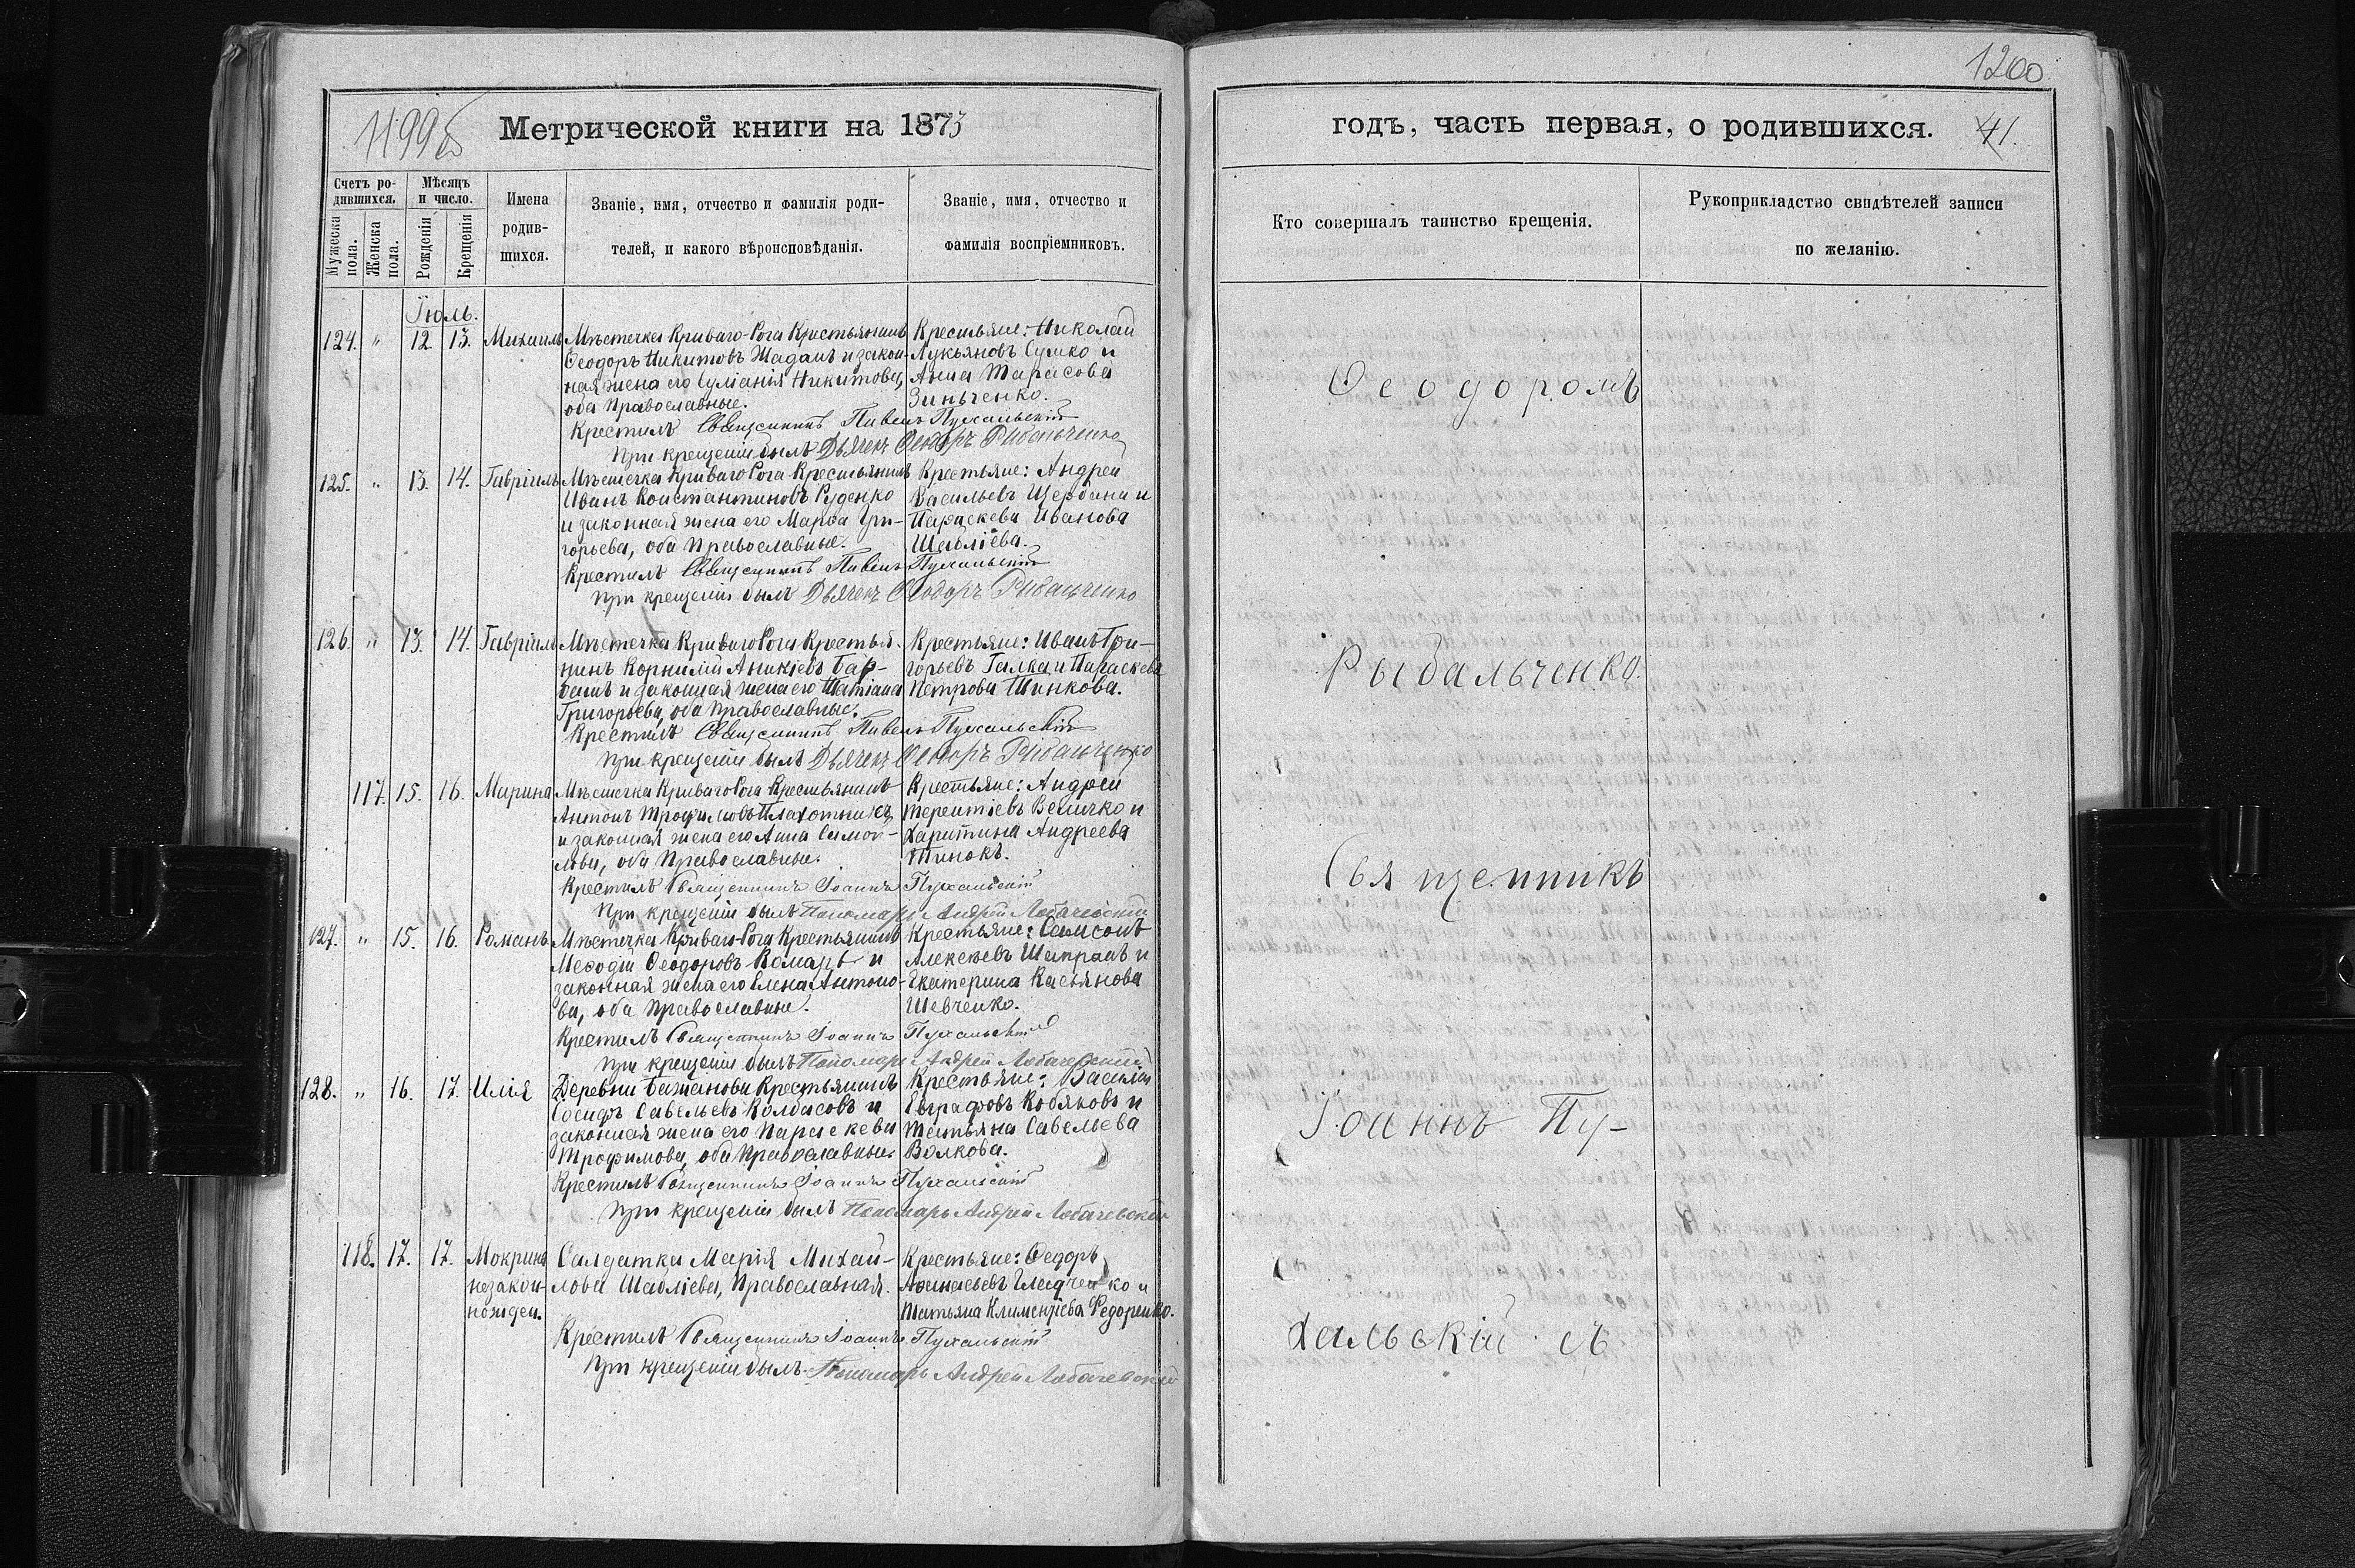 1200.
1199б
Метрической книги на 1873
годъ, часть первая, о родившихся. 41.
Счетъ ро-
дившихся.
Мѣсяцъ
и число.
Мужеска
пола.
Женска
пола.
Рожденія
Крещенія
Имена
родив-
шихся.
Званіе, имя, отчество и фамилія роди-
телей, и какого вѣроисповѣданія.
Званіе, имя, отчество и
фамилія воспріемниковъ.
Кто совершалъ таинство крещенія.
Рукоприкладство свидѣтелей записи
по желанію.
Іюль.
124. „ 12 13. Михаилъ Мѣстечка Криваго-Рога Крестьянинъ Крестьяне: Николай
Ѳеодоръ Никитовъ Жаданъ и закон- Лукьяновъ Сушко и
ная жена его Іуліанія Никитова, Анна Тарасова
оба Православные. Зинченко.
Крестилъ Священникъ Павелъ Пухальскій
При крещеніи былъ Дьячекъ Ѳеодоръ Рибальченко
125. „ 13. 14. Гавріилъ Мѣстечка Криваго Рога Крестьянинъ Крестьяне: Андрей
Иванъ Константиновъ Руденко Васильевъ Щербина и
и законная жена его Марѳа Гри- Параскева Иванова
горьева, оба Православные. Шабліева.
Крестилъ Священникъ Павелъ Пухальскій
При крещеніи былъ Дьячекъ Ѳеодоръ Рибальченко
126. „ 13. 14. Гавріилъ Мѣстечка Криваго Рога Крестья- Крестьяне: Иванъ Гри-
нинъ Корнилій Аникіевъ Бар- горьевъ Галка и Параскева
банъ и законная жена его Татіана Петрова Шинкова.
Григорьева, оба Православные.
Крестилъ Священникъ Павелъ Пухальскій
При крещеніи былъ Дьячекъ Ѳеодоръ Рибальченко
117. 15. 16. Марина Мѣстечка Криваго Рога Крестьянинъ Крестьяне: Андрей
Антонъ Трофимовъ Плахотникъ Терентіевъ Величко и
и законная жена его Анна Самой- Харитина Андреева
лова, оба Православные. Тинокъ.
Крестилъ Священникъ Іоаннъ Пухальскій
При крещеніи былъ Пономарь Андрей Лобачевскій
127. „ 15. 16. Романъ Мѣстечка Криваго-Рога Крестьянинъ Крестьяне: Самсонъ
Меѳодій Ѳеодоровъ Комаръ и Алексѣевъ Шапранъ и
законная жена его Елена Антоно- Екатерина Касьянова
ва, оба Православные. Шевченко.
Крестилъ Священникъ Іоаннъ Пухальскій
При крещеніи былъ Пономарь Андрей Лобачевскій
128. „ 16. 17. Илія Деревни Бажановы Крестьянинъ Крестьяне: Василій
Іосифъ Савельевъ Колбасовъ и Евграфовъ Кобяковъ и
законная жена его Параскева Татьяна Савельева
Трофимова, оба Православные. Волкова.
Крестилъ Священникъ Іоаннъ Пухальскій
При крещеніи былъ Пономарь Андрей Лобачевскій
118. 17. 17. Мокрина Салдатка Марія Михай- Крестьяне: Ѳедоръ
незакон- лова Шабліева, Православная. Аѳанасьевъ Гладченко и
норожден. Татьяна Климентіева Федоренко.
Крестилъ Священникъ Іоаннъ Пухальскій
При крещеніи былъ Пономарь Андрей Лобачевскій
Ѳеодоромъ
Рыбальченко.
Священникъ
Іоаннъ Пу-
хальскій съ